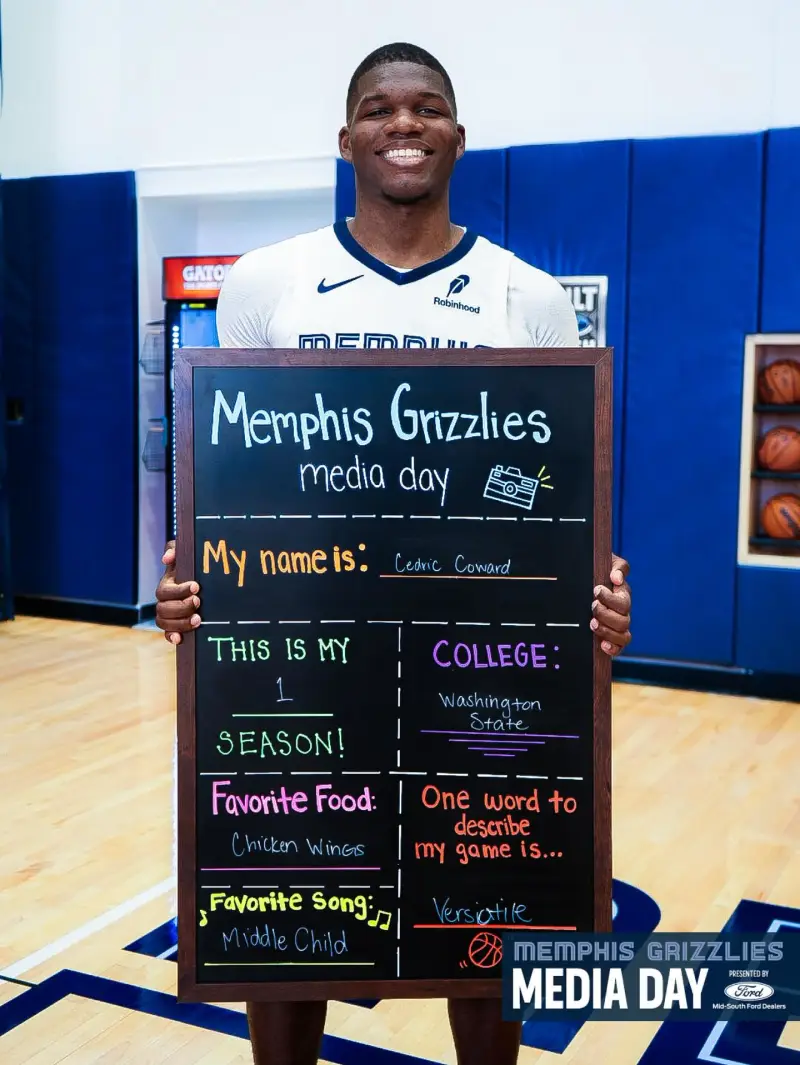 GATO
Robinhood
MEMPHIS
ULT
Memphis Grizzlies
media day
My name is: Cedric Coward
THIS IS MY
1
SEASON!
COLLEGE:
Washington
State
Favorite Food:
Chicken Wings
Favorite Song:
Middle Child
One word to
describe
my game is...
Versiatile
MEMPHIS GRIZZLIES
MEDIA DAY
PRESENTED BY
Ford
Mid-South Ford Dealers